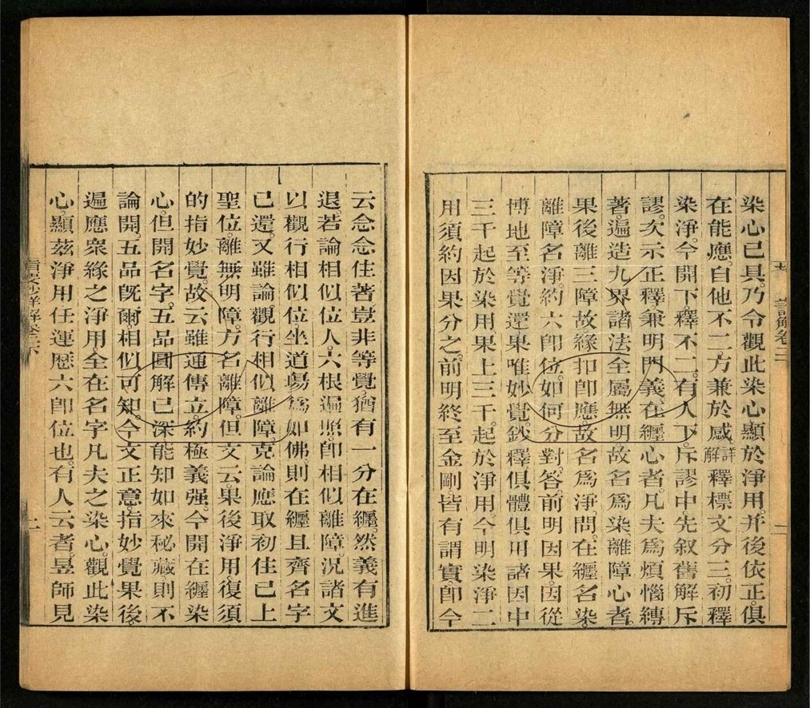 染心已具。乃令觀此染心顯於淨用。并後依正。俱
在能應。自他不二方兼於感。詳解釋標文分三。初釋
染淨。今開下釋不二。有人下斥謬中先叙舊解斥
謬。次示正釋兼明門義在纏心者。凡夫爲煩惱縛
著遍造九界諸法全屬無明故名爲染離障心者。
果後離三障故緣扣即應故名爲淨。問。在纏名染。
離障名淨。約六即位如何分對。答。前明因果因從
博地至等覺還果唯妙覺。鈔釋俱體俱用諸因中
三千起於染用果上三千。起於淨用今明染淨二
用須約因果分之。前明終至金剛皆有謂實即今
云念念住著豈非等覺猶有一分在纏。然義有進
退。若論相似位人六根遍照。即相似離障。況諸文
以觀行相似位坐道場爲如佛則在纏且齊名字
已還。又雖論觀行相似離障。克論應取初住已上
聖位。離無明障。方名離障。但文云果後淨用。復須
的指妙覺。故云雖通傳立約極義强。今開在纏染
心。但開名字。五品圓解已深能知如來秘藏則不
論開五品既爾相似可知今文正意。指妙覺果後。
遍應衆緣之淨用全在名字凡夫之染心。觀此染
心。顯茲淨用任運歷六即位也。有人云者昱師見